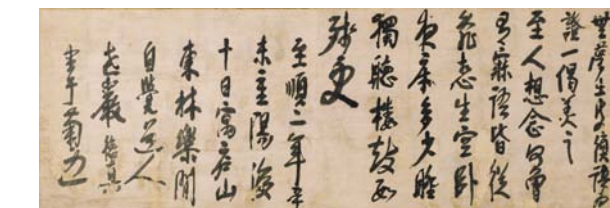 證一偈美之
至人想念何曾
有寐語皆從
志生空臥
東廊多少睡
獨聽樓鼓
殘更
至順二年辛
未重陽後
十日寓廬山
東林樂閒
自覺道人
老巖